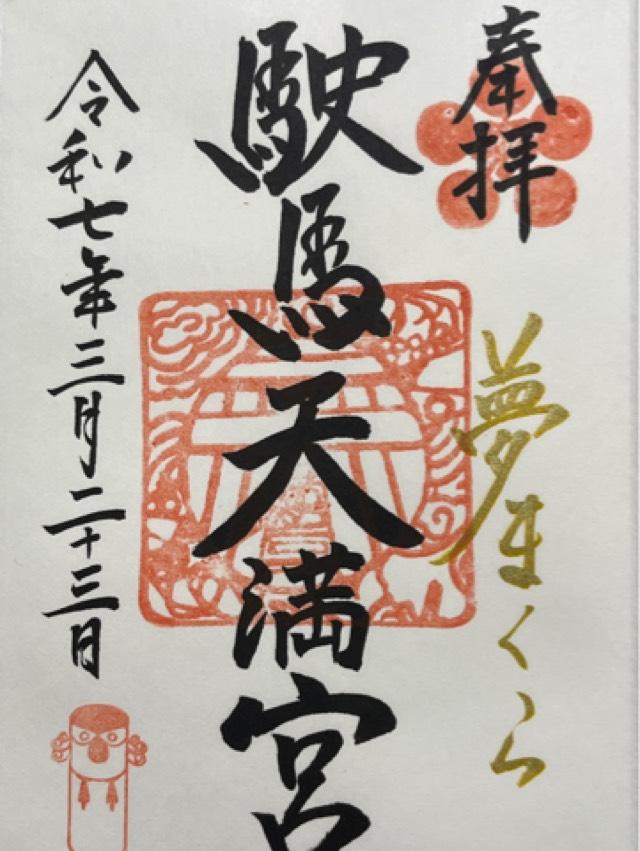 奉拝
夢まくら
駛馬天満宮
令和七年三月二十三日